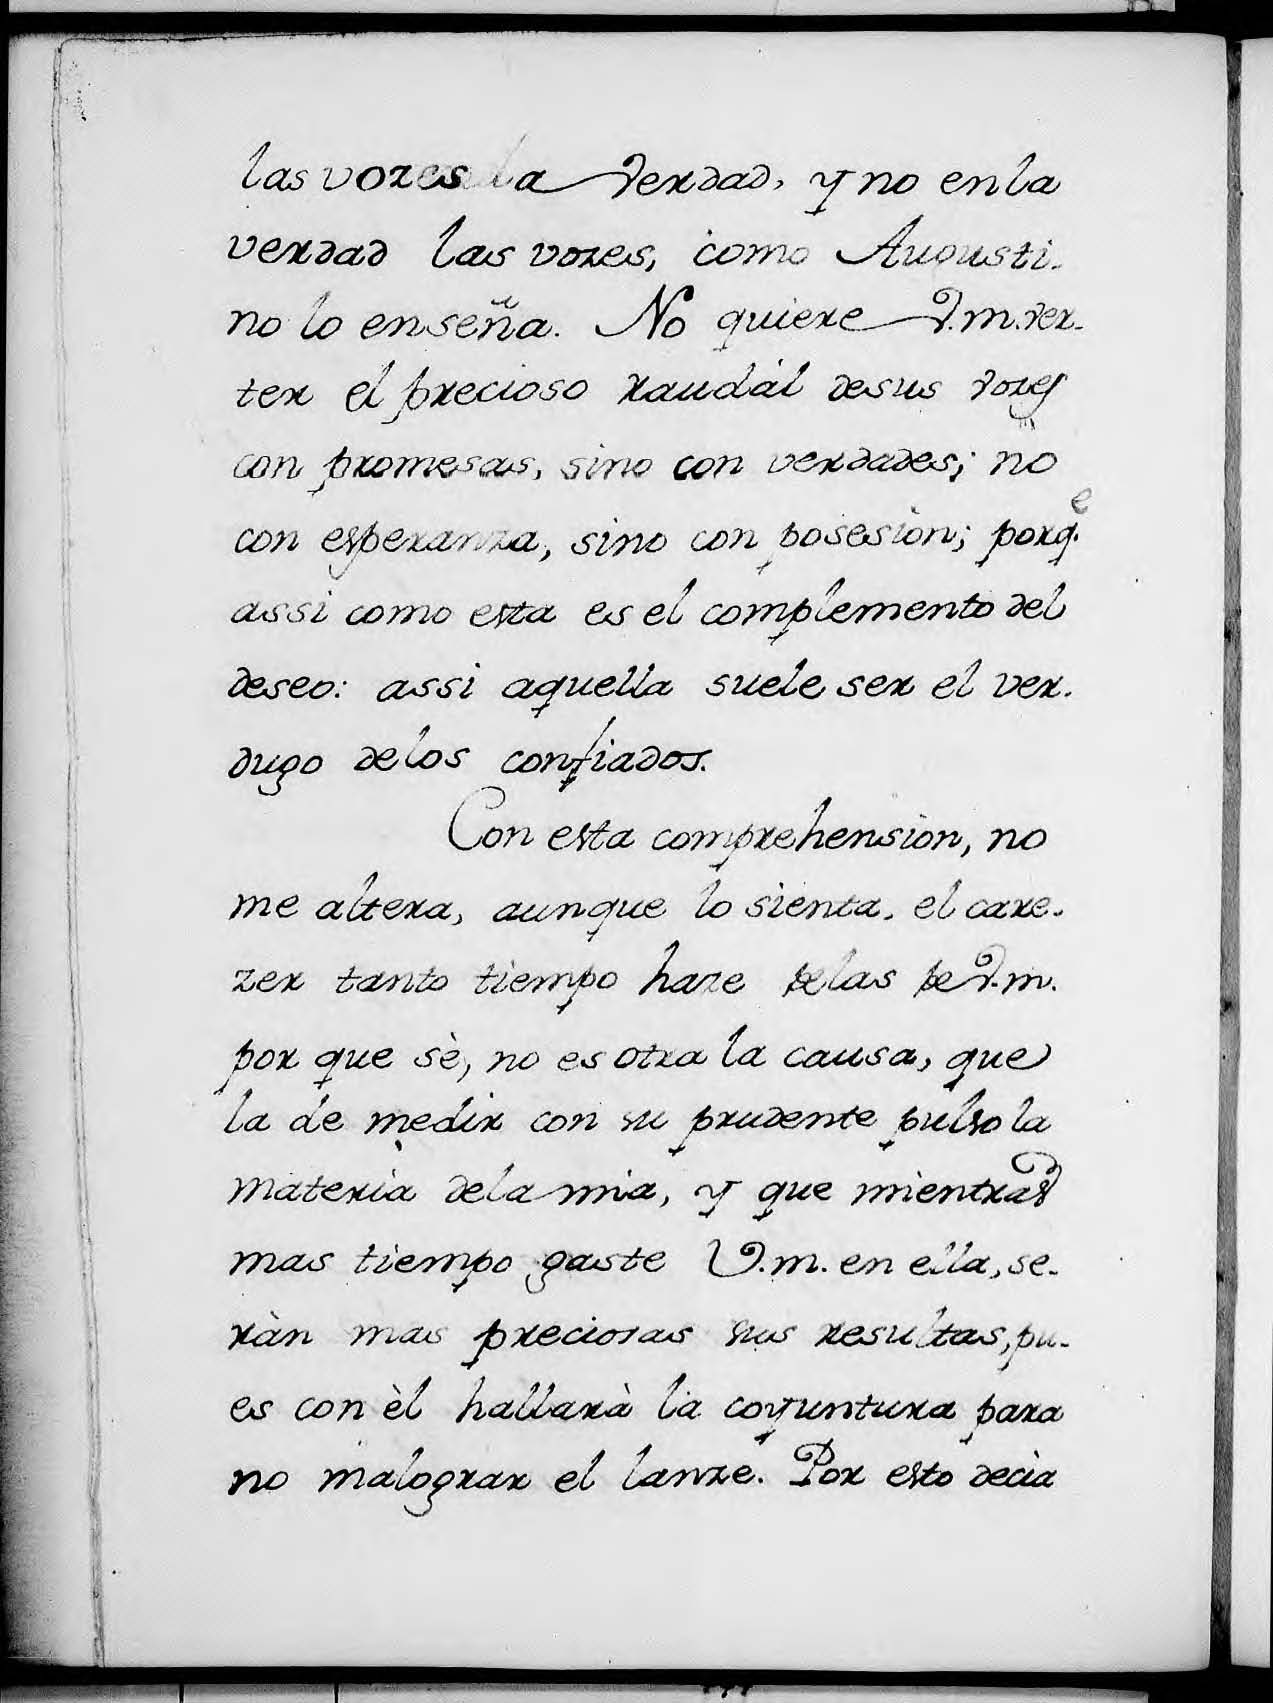 las vozes la verdad, y no en la
verdad las vozes, como Augusti-
no lo enseña. No quiere V.m. ver-
ter el precioso raudál de sus vozes
con promesas, sino con verdades; no
con esperanza, sino con posesion; porq.e
assi como esta es el complemento del
deseo: assi aquella suele ser el ver-
dugo de los confiados.
Con esta comprehension, no
me altera, aunque lo sienta, el care-
zer tanto tiempo haze de las de V.m.
por que sè, no es otra la causa, que
la de medir con su prudente pulso la
materia de la mia, y que mientras
mas tiempo gaste V.m. en ella, se-
ràn mas preciosas sus resultas, pu-
es con èl hallarà la coyuntura para
no malograr el lanze. Por esto decia